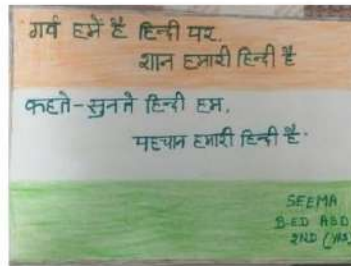 गर्व हमें है हिन्दी पर,
शान हमारी हिन्दी है
कहते-सुनते हिन्दी हम,
पहचान हमारी हिन्दी है.
SEEMA
B.ED ABD
2ND (YR)